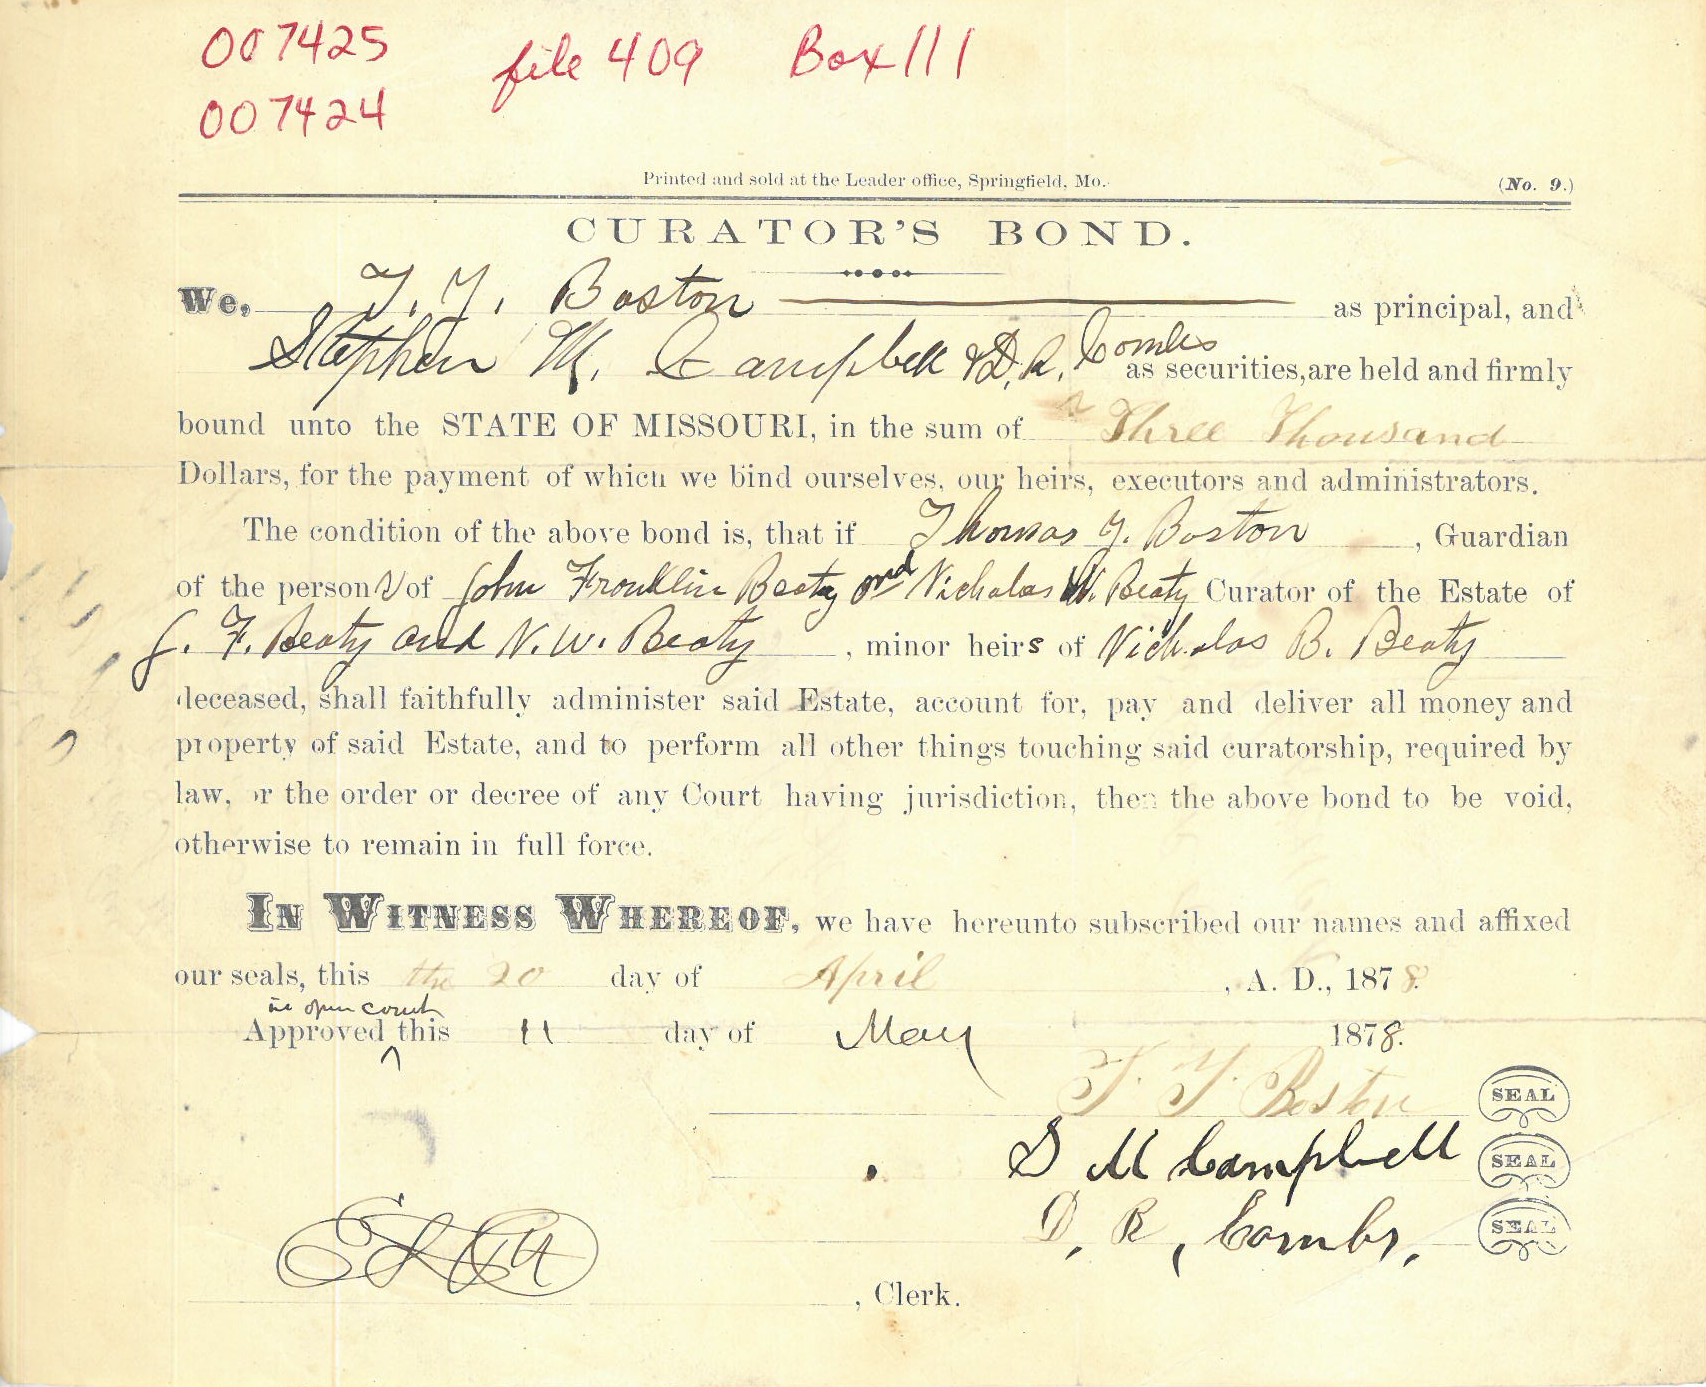 007425 file 409 Box 111
007424
Printed and sold at the Leader office, Springfield, Mo. (No. 9.)
CURATOR'S BOND.
We, T. Y. Boston as principal, and
Stephen M. Campbell & D. R. Combs as securities, are held and firmly
bound unto the STATE OF MISSOURI, in the sum of Three Thousand
Dollars, for the payment of which we bind ourselves, our heirs, executors and administrators.
The condition of the above bond is, that if Thomas Y. Boston, Guardian
of the persons of John Franklin Beaty and Nicholas W. Beaty Curator of the Estate of
J. F. Beaty and N. W. Beaty, minor heirs of Nicholas B. Beaty
deceased, shall faithfully administer said Estate, account for, pay and deliver all money and
property of said Estate, and to perform all other things touching said curatorship, required by
law, or the order or decree of any Court having jurisdiction, then the above bond to be void,
otherwise to remain in full force.
IN WITNESS WHEREOF, we have hereunto subscribed our names and affixed
our seals, this the 20 day of April, A. D., 1878.
in open court
Approved ^ this 11 day of May 1878.
T. Y. Boston SEAL
S M Campbell SEAL
D. R. Combs. SEAL
, Clerk.